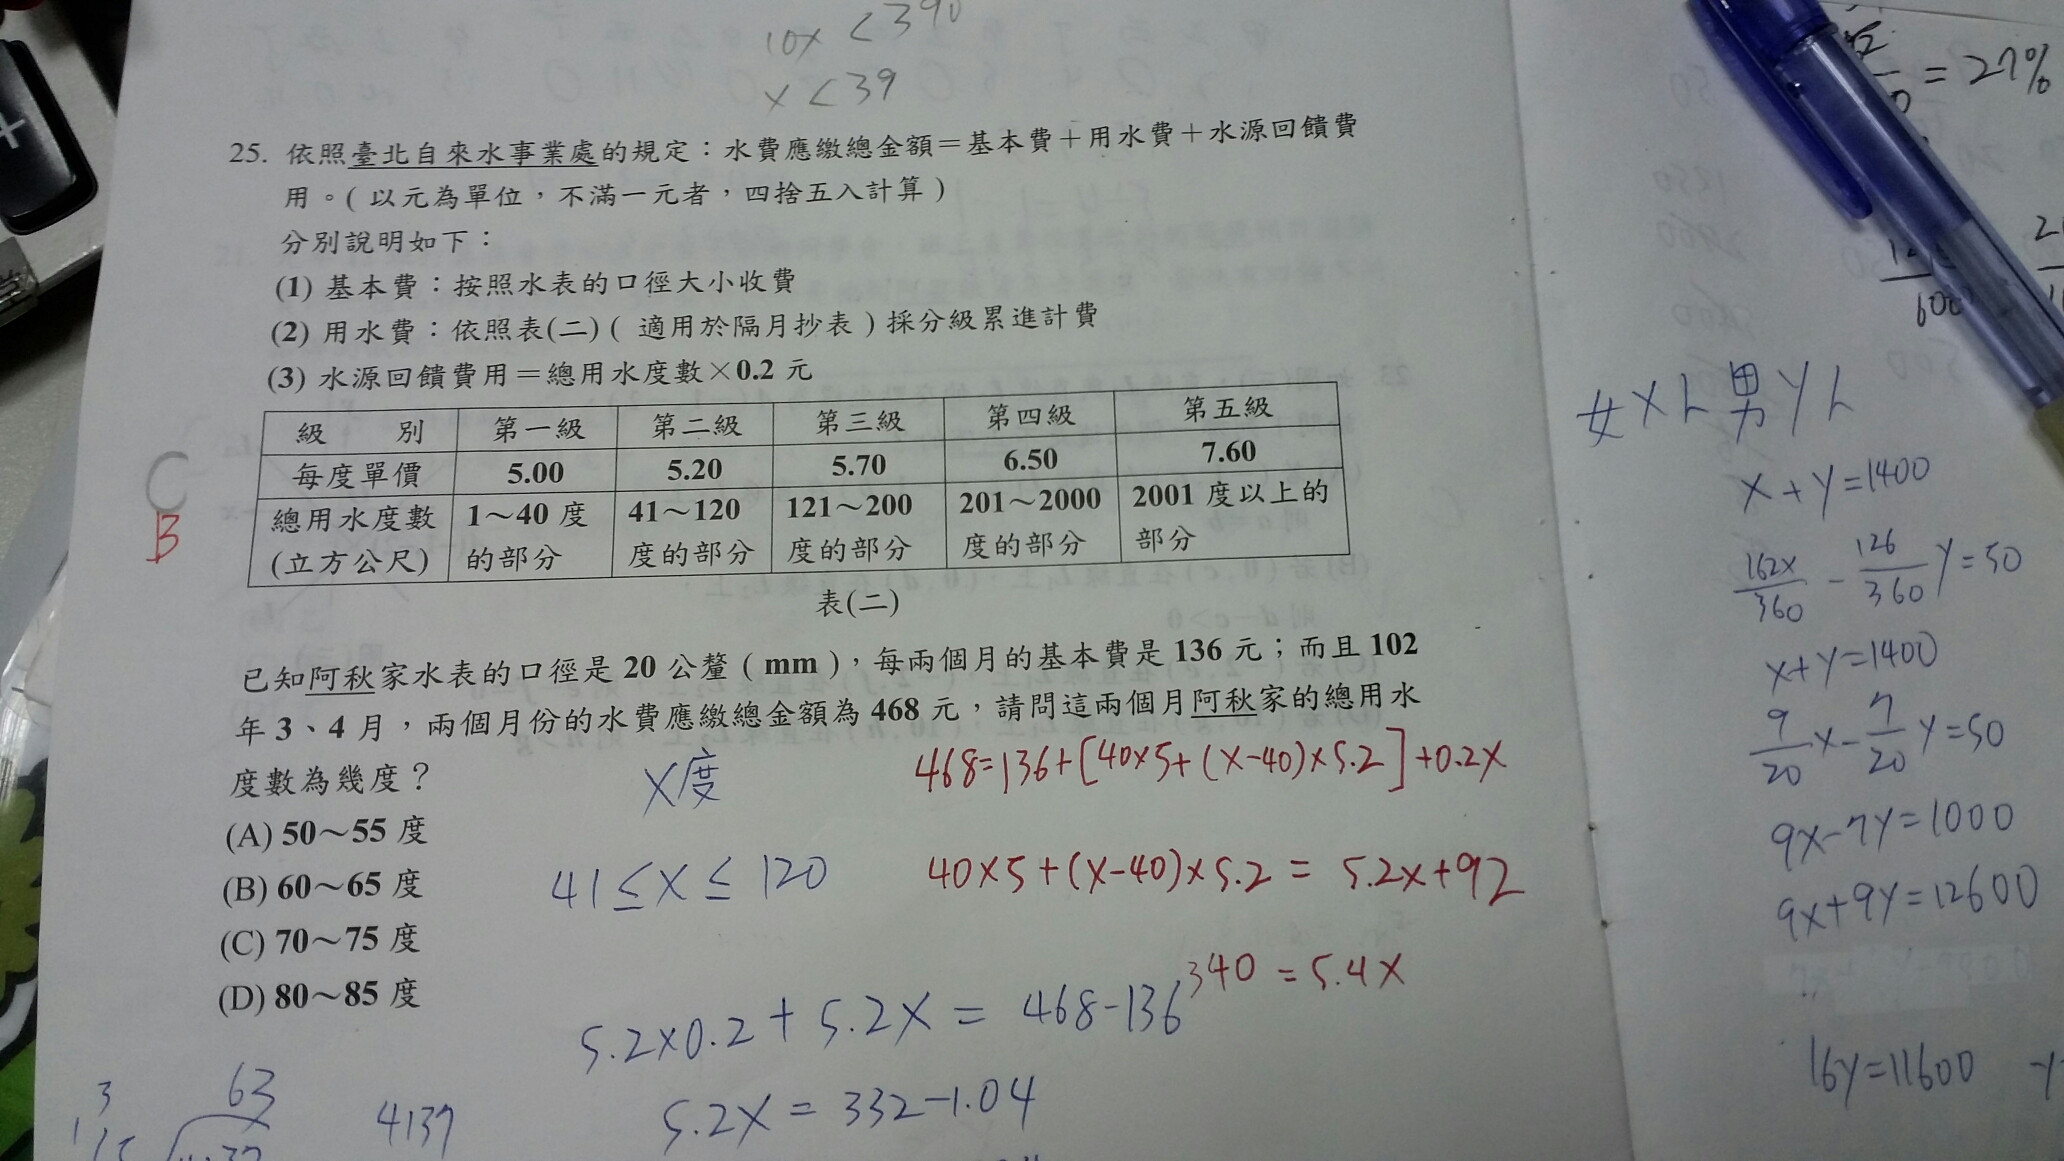 10x <390
x <39
25. 依照臺北自來水事業處的規定：水費應繳總金額＝基本費＋用水費＋水源回饋費
用。( 以元為單位，不滿一元者，四捨五入計算 )
分別說明如下：
(1) 基本費：按照水表的口徑大小收費
(2) 用水費：依照表(二) ( 適用於隔月抄表 ) 採分級累進計費
(3) 水源回饋費用＝總用水度數×0.2 元
級 別 第一級 第二級 第三級 第四級 第五級
每度單價 5.00 5.20 5.70 6.50 7.60
總用水度數 1～40 度 41～120 121～200 201～2000 2001 度以上的
(立方公尺) 的部分 度的部分 度的部分 度的部分 部分
表(二)
C
B
已知阿秋家水表的口徑是 20 公釐 ( mm )，每兩個月的基本費是 136 元；而且 102
年 3、4 月，兩個月份的水費應繳總金額為 468 元，請問這兩個月阿秋家的總用水
度數為幾度？
(A) 50～55 度
(B) 60～65 度
(C) 70～75 度
(D) 80～85 度
x度
468=136+[40×5+(x-40)×5.2]+0.2x
41≤x≤120
40×5+(x-40)×5.2 = 5.2x+92
340 = 5.4x
5.2×0.2+5.2x = 468-136
5.2x = 332-1.04
63
4137
= 27%
女x人男y人
x+y=1400
162x/360 - 126/360 y=50
x+y=1400
9/20 x - 7/20 y=50
9x-7y=1000
9x+9y=12600
16y=11600